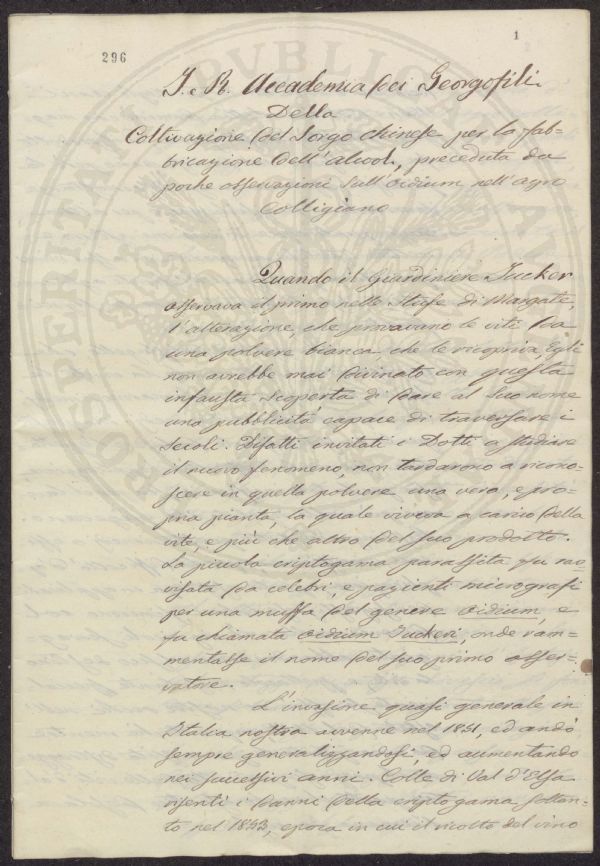 296
1
I. e R. Accademia dei Georgofili
Della
Coltivazione del Sorgo chinese per la fab=
bricazione dell'alcool, preceduta da
poche osservazioni sull'Oidium nell'agro
Colligiano
Quando il giardiniere Tucker
osservava il primo nelle Stufe di Margate,
l'alterazione, che provavano le viti da
una polvere bianca che le ricopriva, Egli
non avrebbe mai divinato con questa
infausta scoperta di dare al suo nome
una pubblicità capace di traversare i
secoli. Difatti invitati i Dotti a studiare
il nuovo fenomeno, non tardarono a ricono=
scere in quella polvere una vera, e pro=
pria pianta, la quale viveva a carico della
vite, e più che altro del suo prodotto.
La piccola criptogama parassita fu rav=
visata da celebri, e pazienti micrografi
per una muffa del genere Oidium, e
fu chiamata Oidium Tuckeri, onde ram=
mentasse il nome del suo primo osser=
vatore.
L'invasione quasi generale in
Italia nostra avvenne nel 1851, ed andò
sempre generalizzandosi, ed aumentando
nei successivi anni. Colle di Val d'Elsa
risentì i danni della criptogama soltan=
to nel 1853, epoca in cui il ricolto del vino
RUSPERITATI PVBLICAE